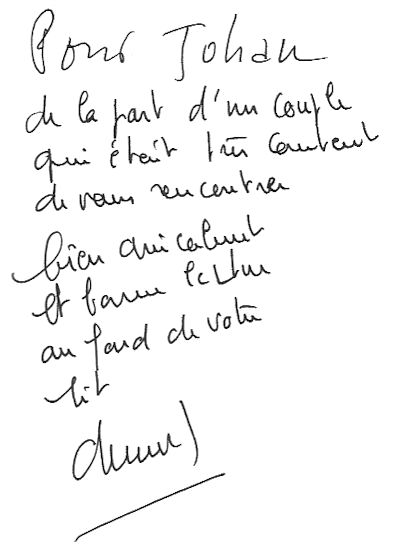 Pour Johan
de la part d'un couple
qui était très content
de vous rencontrer
bien amicalement
et bonne lecture
au fond de votre
lit